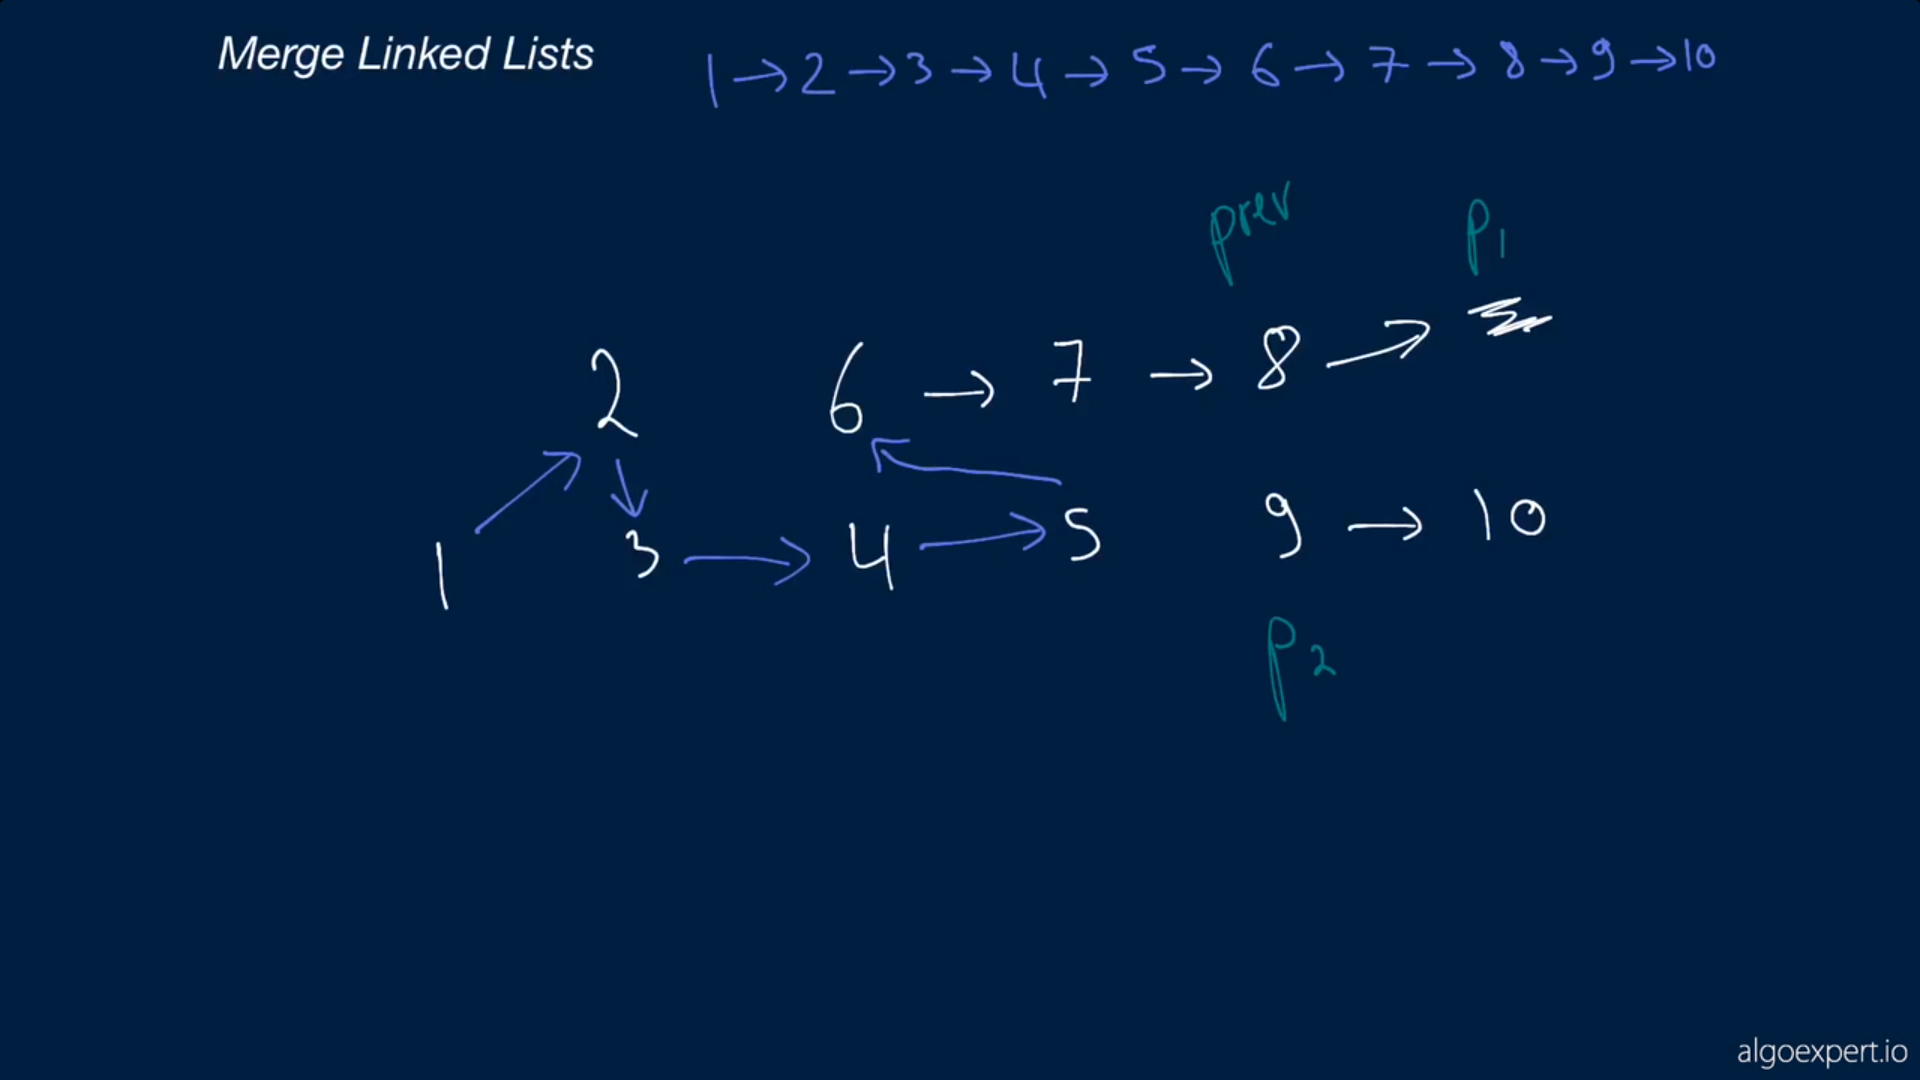 Merge Linked Lists
1 → 2 → 3 → 4 → 5 → 6 → 7 → 8 → 9 → 10
prev p1
2 6 → 7 → 8 →
1 3 → 4 → 5 9 → 10
p2
algoexpert.io